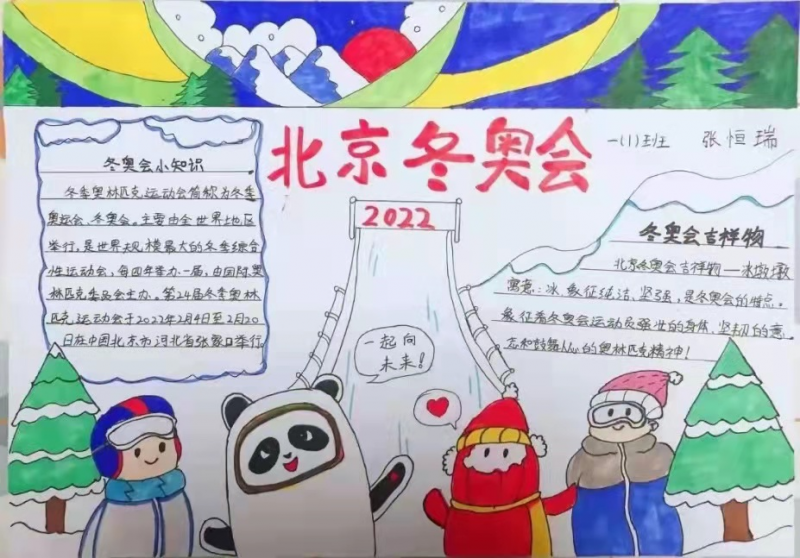 北京冬奥会
一(1)班 张恒瑞
2022
冬奥会小知识
冬季奥林匹克运动会简称为冬季
奥运会、冬奥会。主要由全世界地区
举行,是世界规模最大的冬季综合
性运动会,每四年举办一届,由国际奥
林匹克委员会主办。第24届冬季奥林
匹克运动会于2022年2月4日至2月20
日在中国北京市河北省张家口举行
冬奥会吉祥物
北京冬奥会吉祥物——冰墩墩
寓意:冰,象征纯洁、坚强,是冬奥会的特点。
象征着冬奥会运动员强壮的身体,坚韧的意
志和鼓舞人心的奥林匹克精神!
一起向
未来!